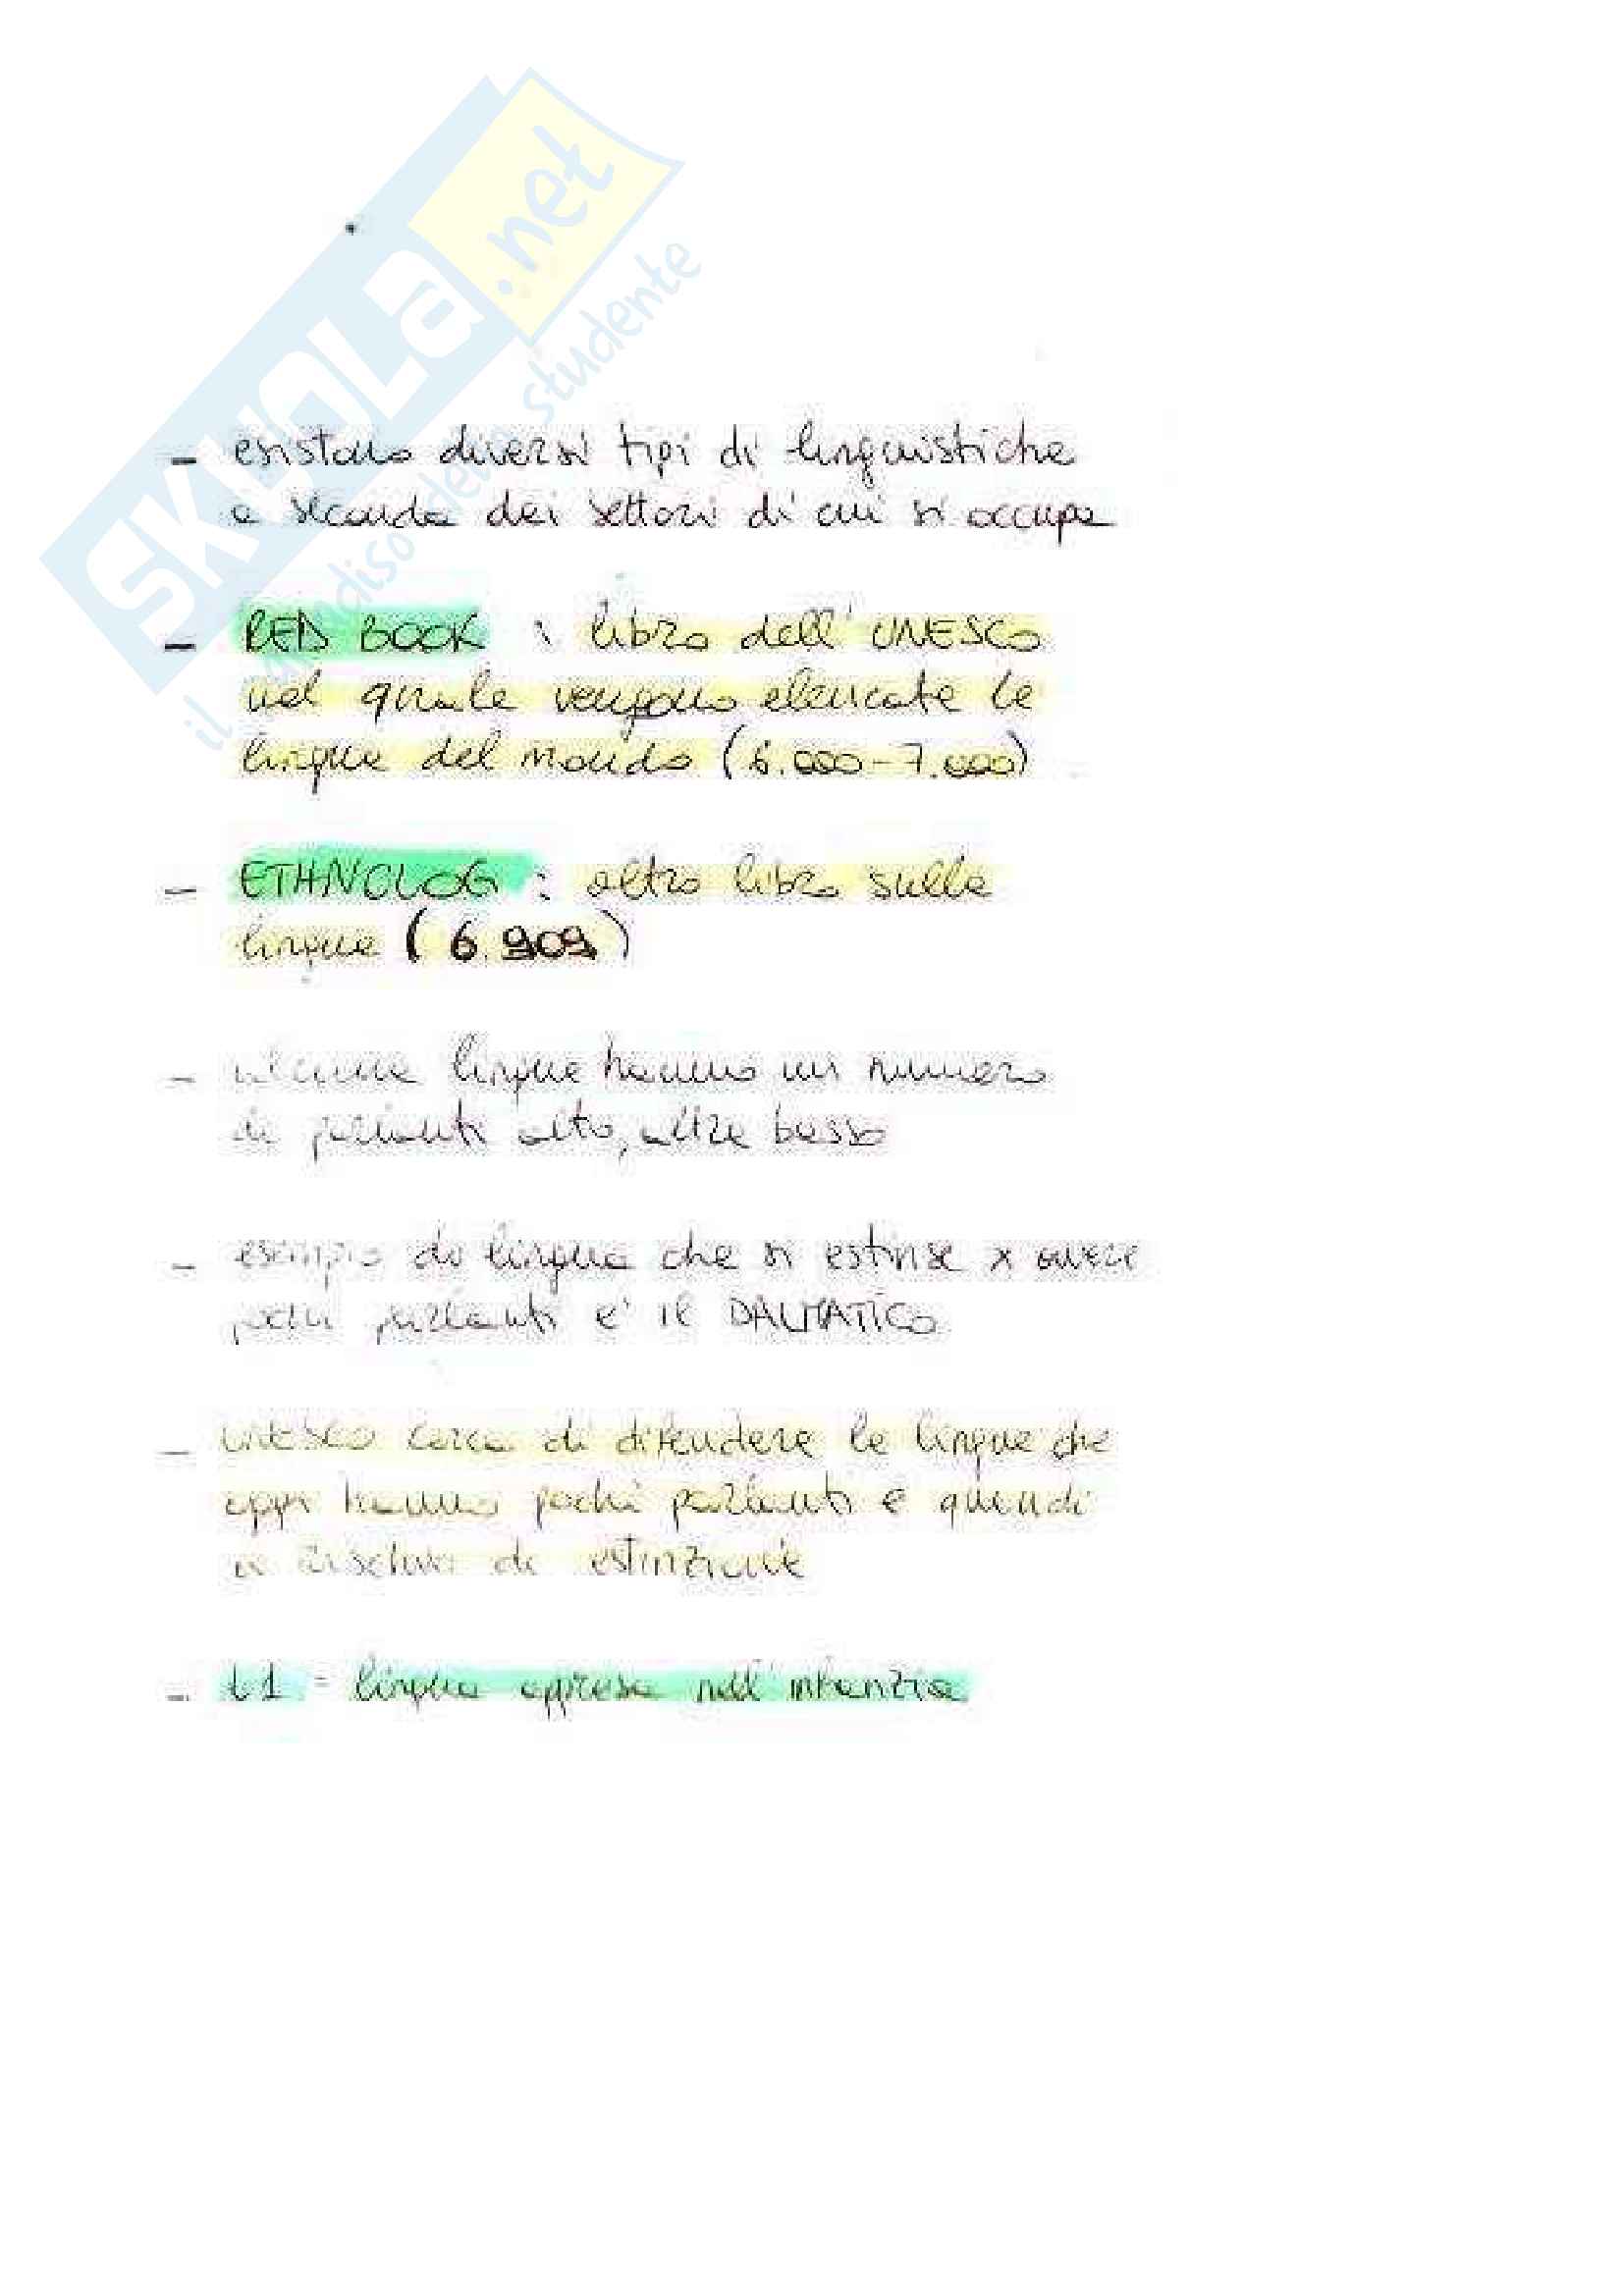 SKUOLA.net
il paradiso dello studente
- esistono diversi tipi di linguistiche
a seconda dei settori di cui si occupa
- RED BOOK : libro dell'UNESCO
nel quale vengono elencate le
lingue del mondo (6.000-7.000)
- ETHNOLOG : altro libro sulle
lingue (6.909)
- alcune lingue hanno un numero
di parlanti alto, altre basso
- esempio di lingua che si estinse x avere
pochi parlanti e' il DALMATICO
- UNESCO cerca di difendere le lingue che
oggi hanno pochi parlanti e quindi
a rischio di estinzione
- L1 = lingua appresa nell'infanzia